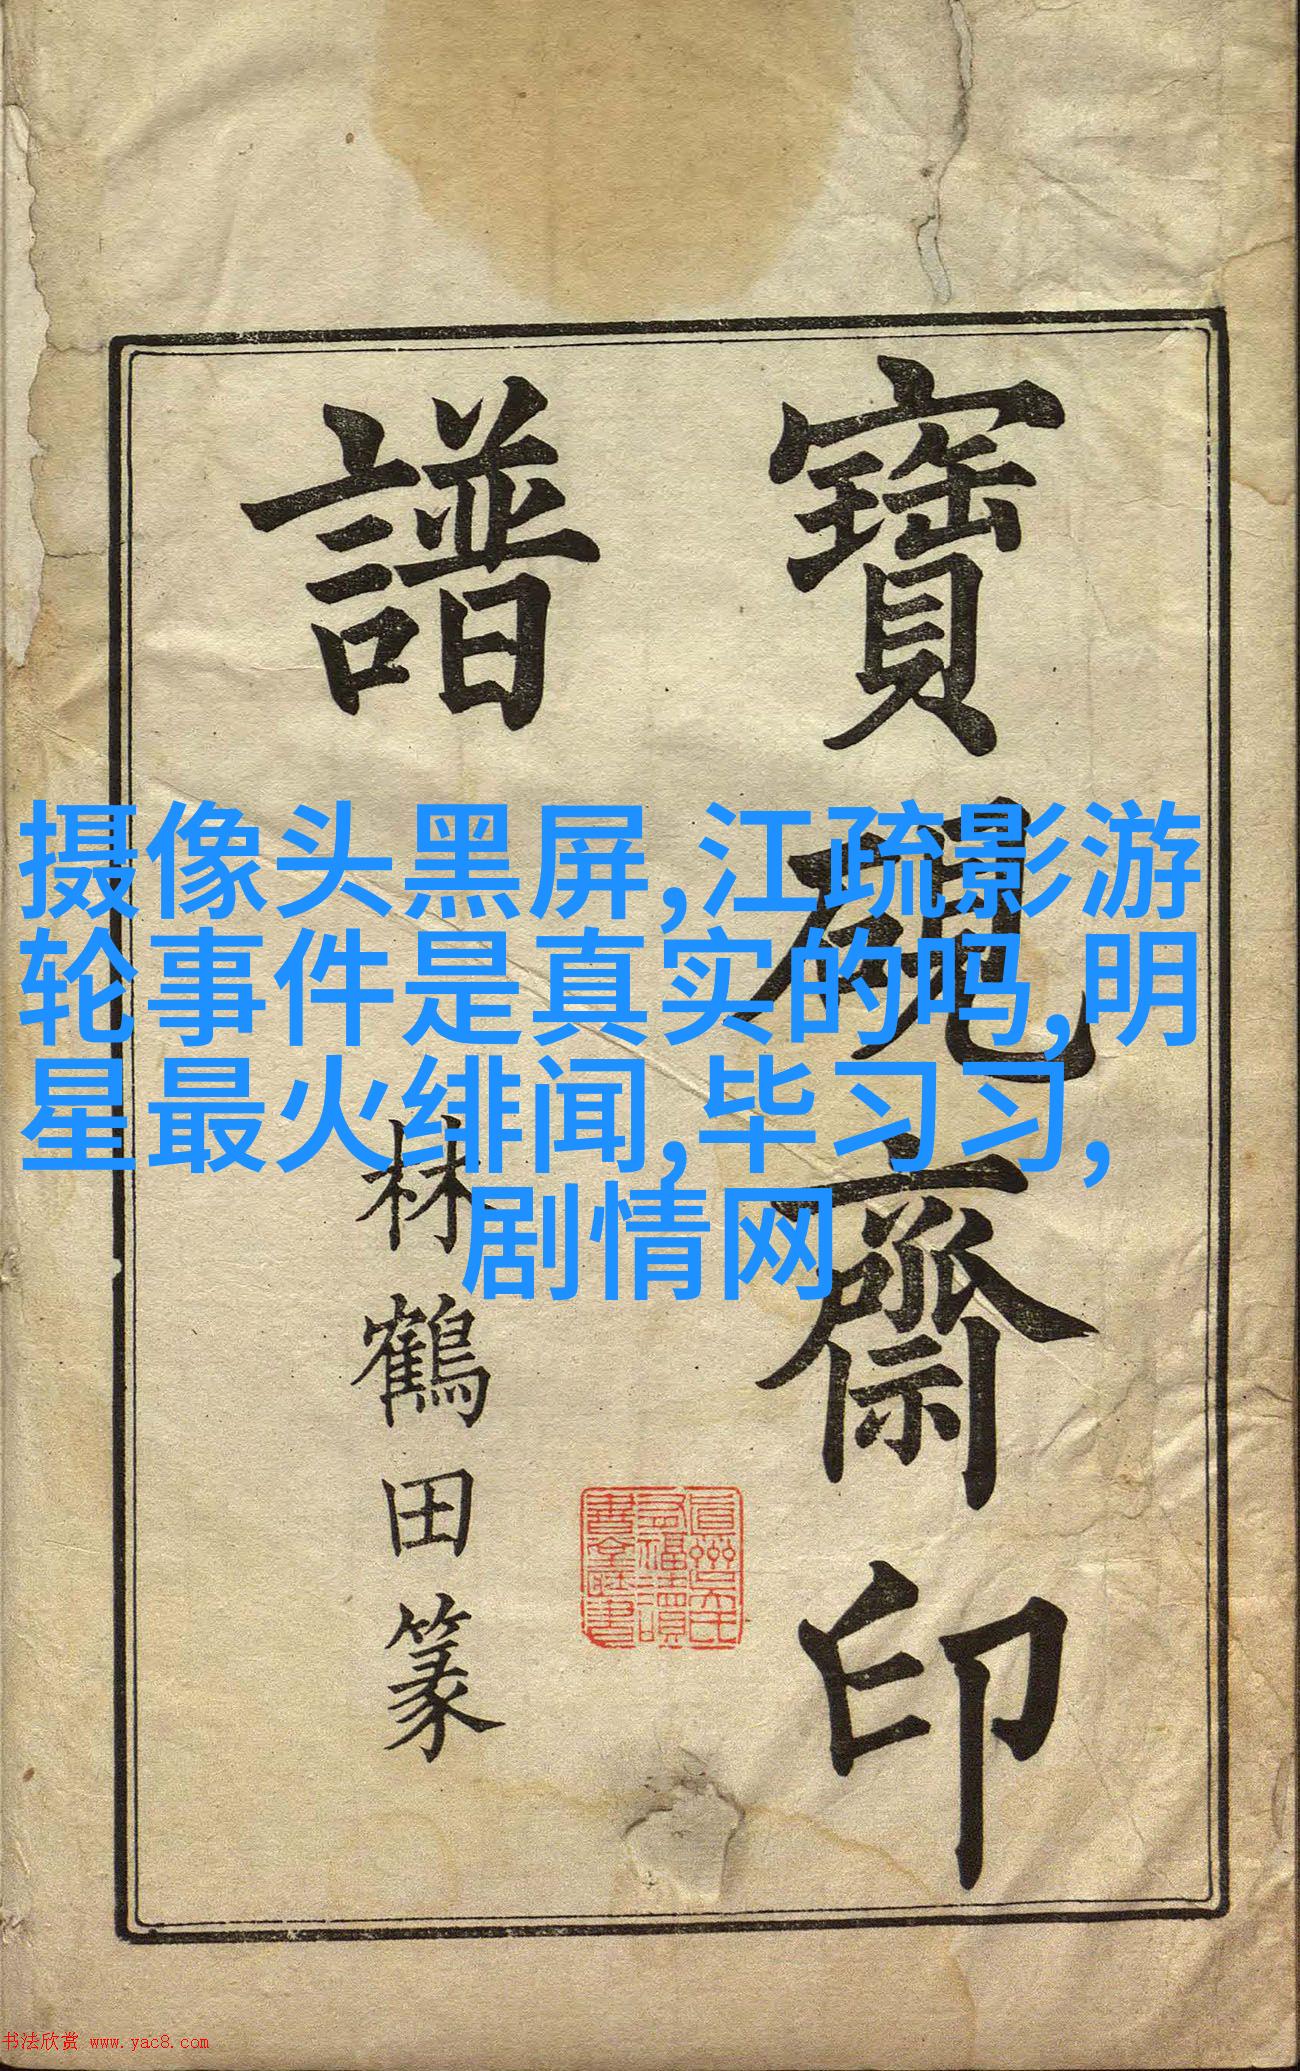 寶硯齋印
譜
林鶴田篆
摄像头黑屏,江疏影游
轮事件是真实的吗,明
星最火绯闻,毕习习,
剧情网
书法欣赏 www.yac8.com